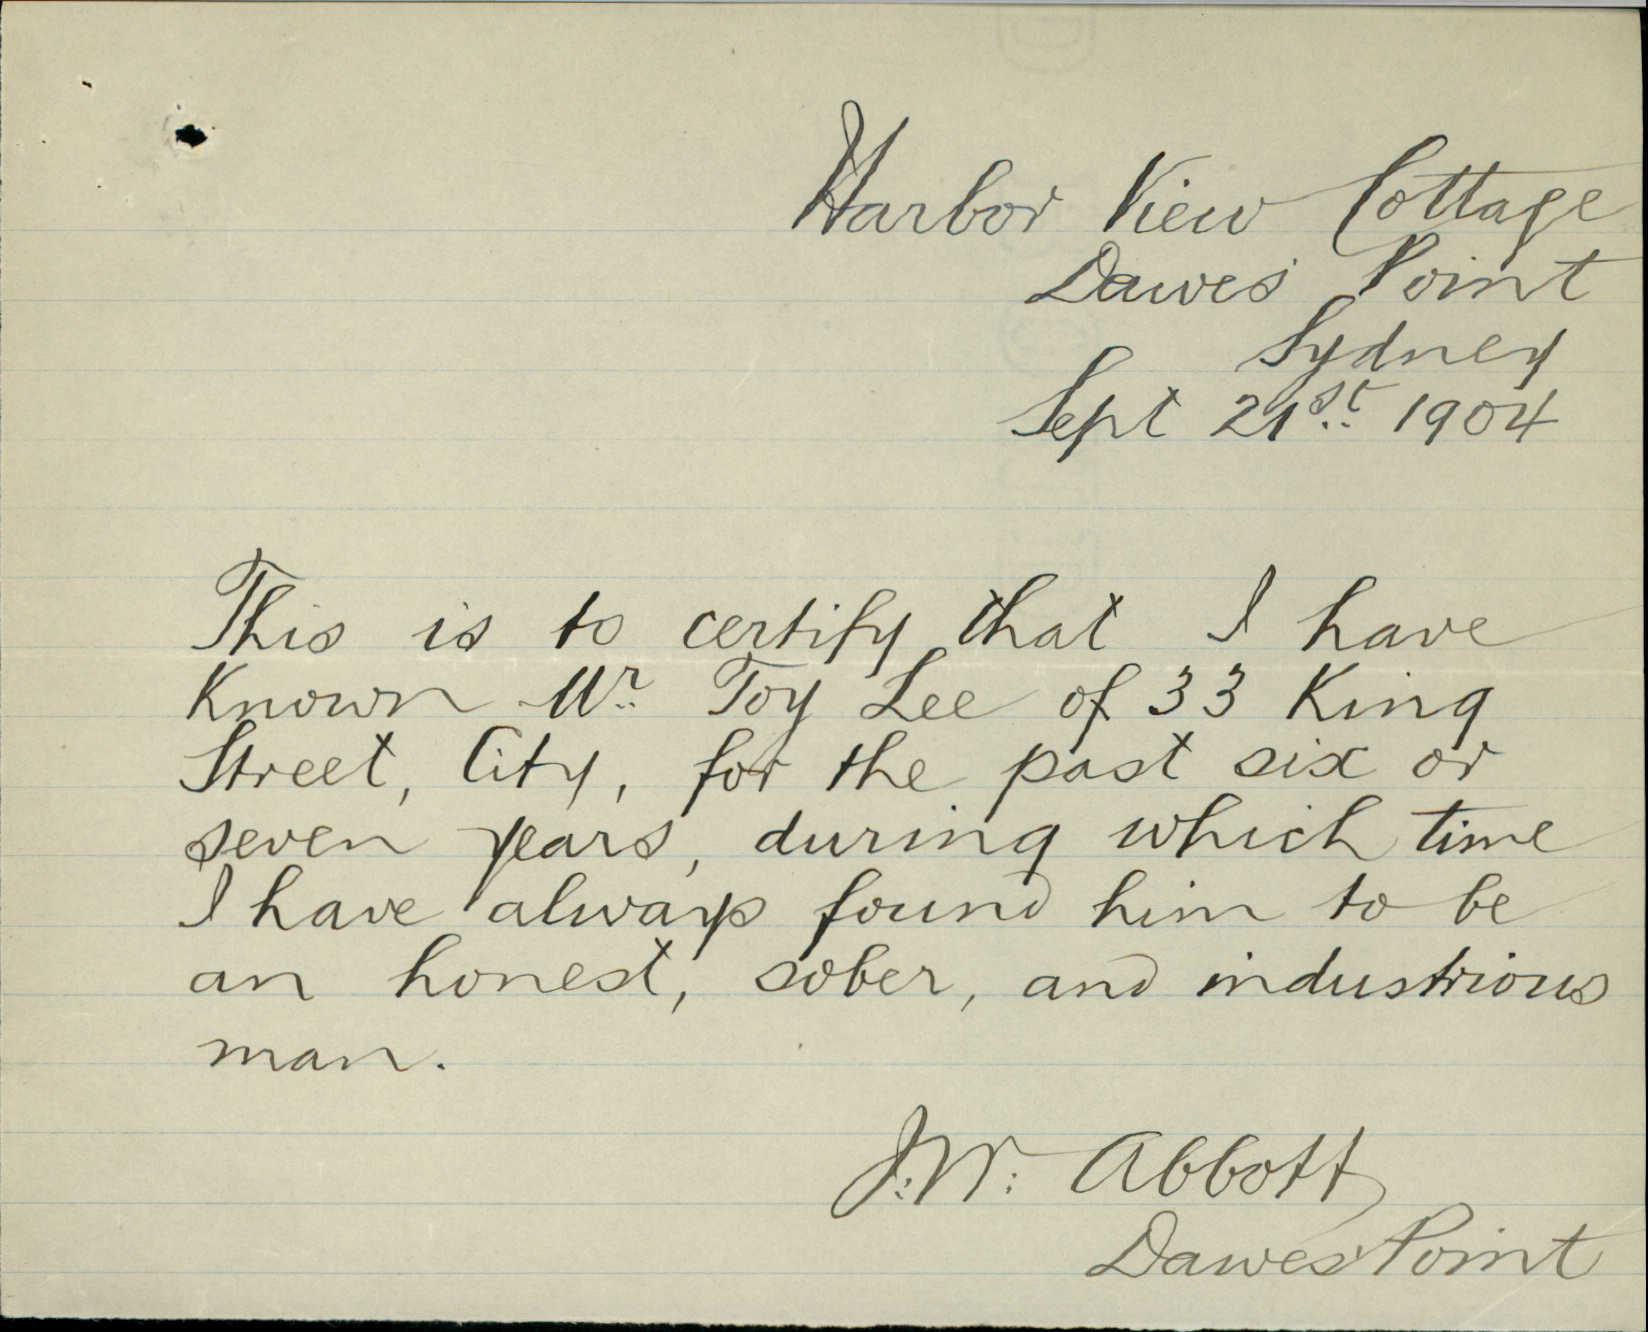 Harbor View Cottage
Dawes' Point
Sydney
Sept 21st 1904
This is to certify that I have
Known Mr Toy Lee of 33 King
Street, City, for the past six or
seven years, during which time
I have always found him to be
an honest, sober, and industrious
man.
J. W. Abbott
Dawes' Point